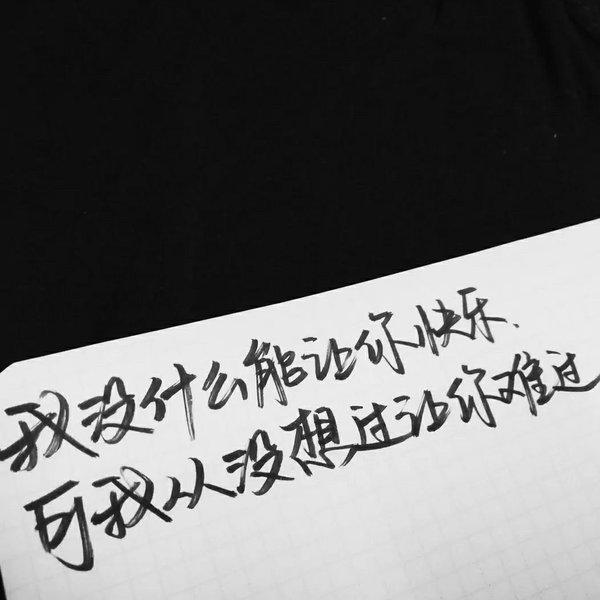 我没什么能让你快乐、
可我从没想过让你难过